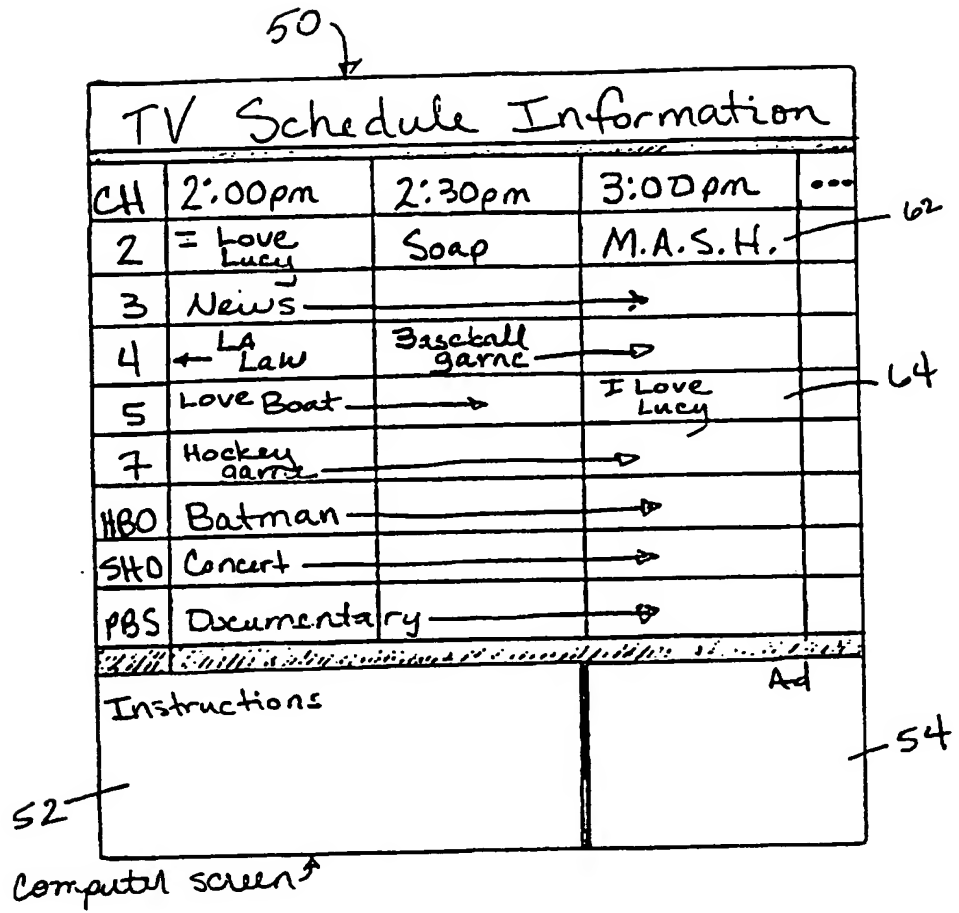 50
TV Schedule Information
CH 2:00pm 2:30pm 3:00pm •••
62
2 I Love Lucy Soap M.A.S.H.
3 News
4 LA Law Baseball game
64
5 Love Boat I Love Lucy
7 Hockey game
HBO Batman
SHO Concert
PBS Documentary
Instructions Ad
54
52
Computer screen